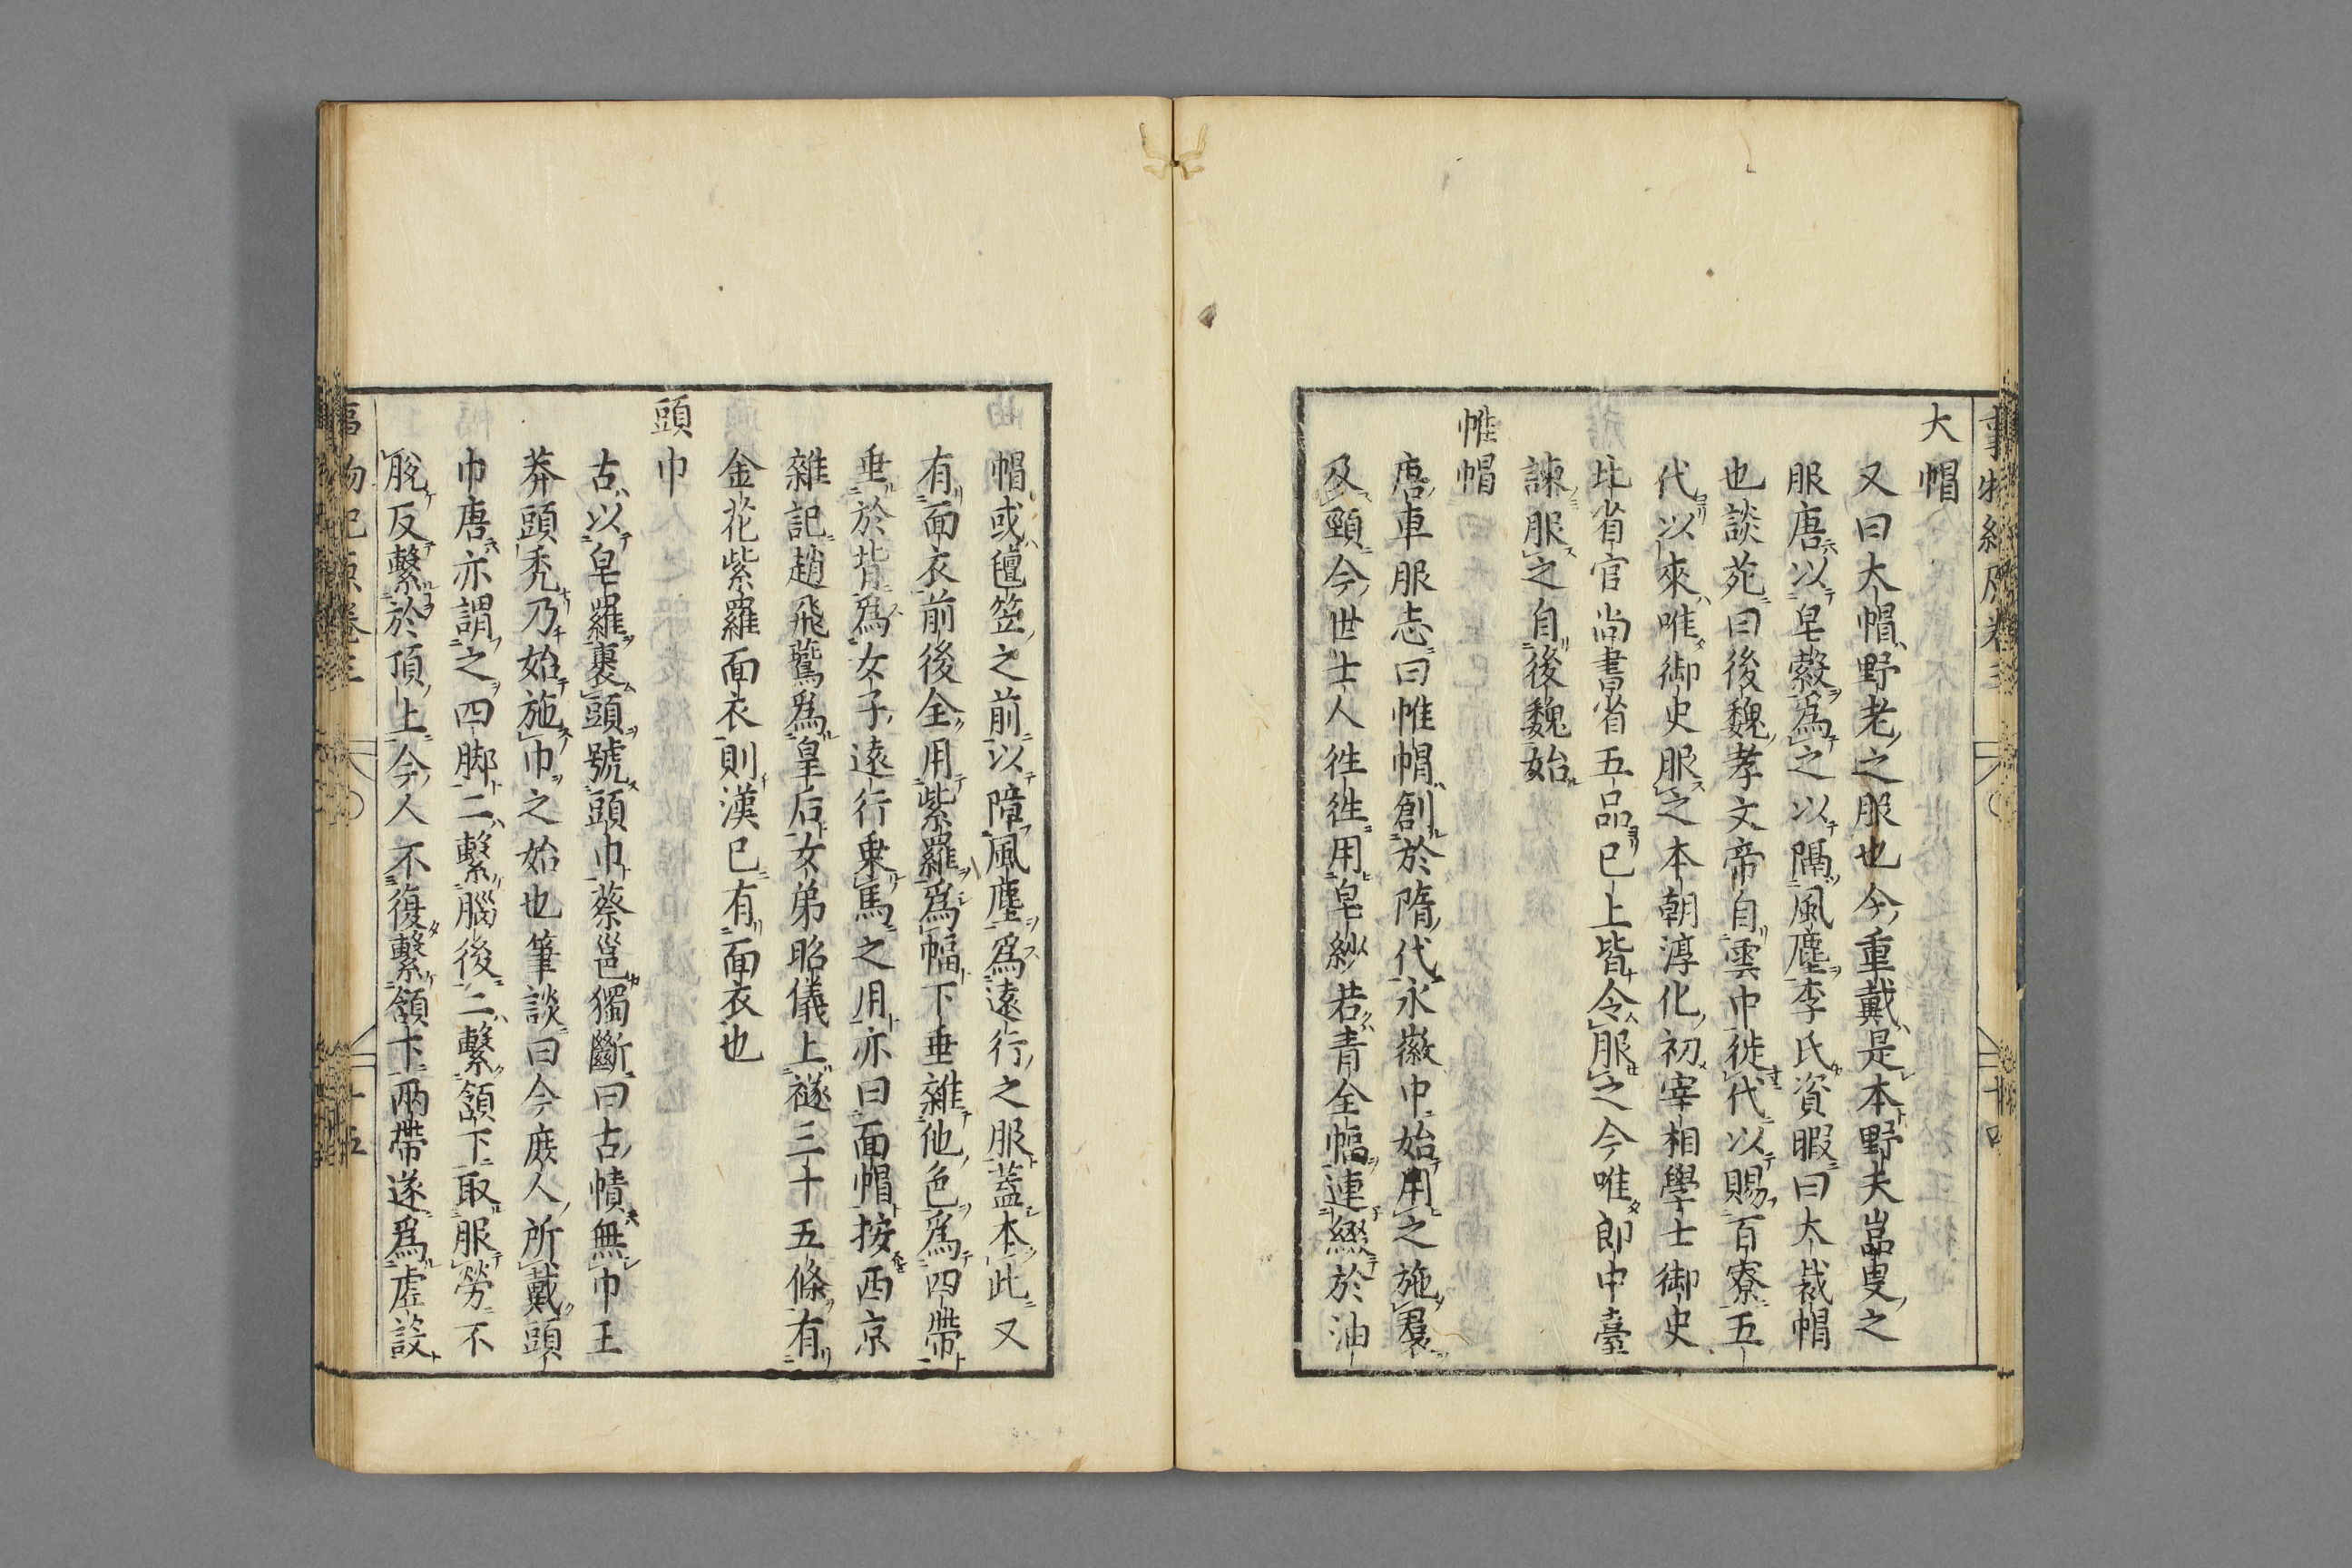 大帽
又曰大帽野老之服也今重戴是本野夫嵓叟之
服唐以皂縠爲之以隔風塵李氏資暇曰大裁帽
也談苑曰後魏孝文帝自雲中徙代以賜百寮五
代以來唯御史服之本朝淳化初宰相學士御史
北省官尚書省五品已上皆令服之今唯郎中臺
諫服之自後魏始
帷帽
唐車服志曰帷帽創於隋代永徽中始用之施裠
及頸今世士人徃徃用皂紗若青全幅連綴於油
帽或氊笠之前以障風塵爲遠行之服蓋本此又
有面衣前後全用紫羅爲幅下垂雜他色爲四帶
垂於背爲女子遠行乗馬之用亦曰面帽按西京
雜記趙飛鷰爲皇后女弟昭儀上襚三十五條有
金花紫羅面衣則漢已有面衣也
頭巾
古以皂羅裹頭號頭巾蔡邕獨斷曰古幘無巾王
莽頭秃乃始施巾之始也筆談曰今庶人所戴頭
巾唐亦謂之四脚二繫腦後二繫頷下取服勞不
脫反繫於頂上今人不復繫頷下兩帶遂爲虚設